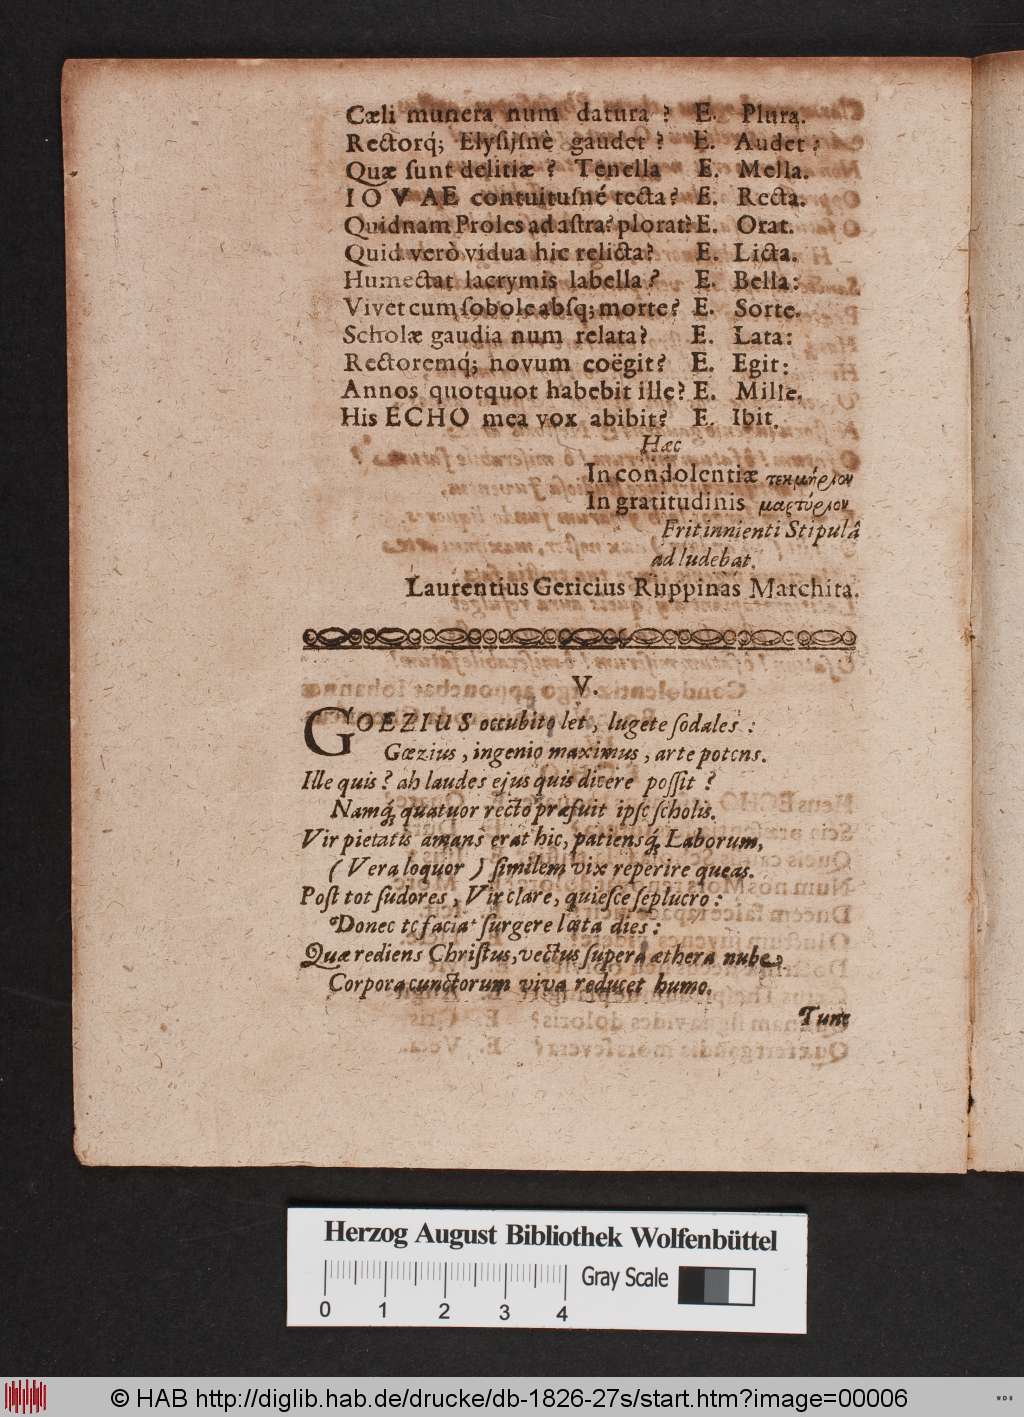 Cæli munera num datura ? E. Plura.
Rectorq́; Elysijsnè gaudet ? E. Audet ?
Quæ sunt delitiæ ? Tenella E. Mella.
IOVAE contuitusné tecta? E. Recta.
Quidnam Proles ad astra? plorat? E. Orat.
Quid verò vidua hic relicta? E. Licta.
Humectat lacrymis labella ? E. Bella:
Vivet cum sobole absq; morte? E. Sorte.
Scholæ gaudia num relata? E. Lata:
Rectoremq́; novum coëgit? E. Egit:
Annos quotquot habebit ille? E. Mille.
His ECHO mea vox abibit? E. Ibit.
Hæc
In condolentiæ τεκμήριον
In gratitudinis μαρτύριον
Fritinnienti Stipulâ
adludebat.
Laurentius Gericius Ruppinas Marchita.
V.
GOEZIUS occubito let, lugete sodales :
Gœzius, ingenio maximus, arte potens.
Ille quis ? ah laudes ejus quis dicere possit ?
Namq́; quatuor recto præfuit ipse scholis.
Vir pietatis amans erat hic, patiensq́; Laborum,
( Vera loquor ) similem vix reperire queas.
Post tot sudores, Vir clare, quiesce seplucro :
Donec te faciat surgere læta dies :
Quæ rediens Christus, vectus supera æthera nube
Corpora cunctorum viva reducet humo.
Tunc
Herzog August Bibliothek Wolfenbüttel
0 1 2 3 4
Gray Scale
© HAB http://diglib.hab.de/drucke/db-1826-27s/start.htm?image=00006